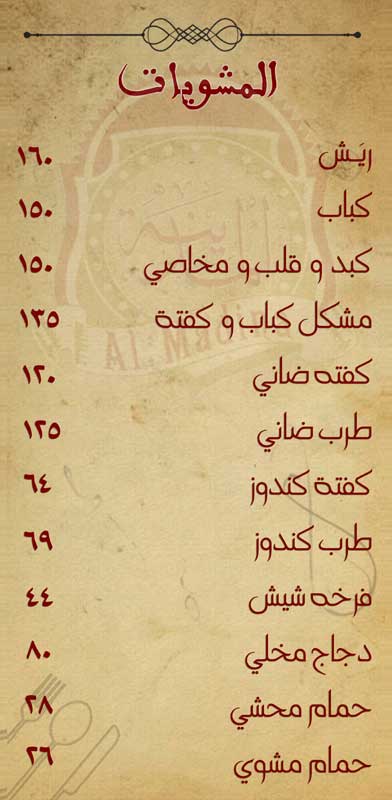 المشويات
ريَش ١٦٠
كباب ١٥٠
كبد و قلب و مخاصي ١٥٠
مشكل كباب و كفتة ١٣٥
كفته ضاني ١٢٠
طرب ضاني ١٢٥
كفتة كندوز ٦٤
طرب كندوز ٦٩
فرخه شيش ٤٤
دجاج مخلي ٨٠
حمام محشي ٢٨
حمام مشوي ٢٦